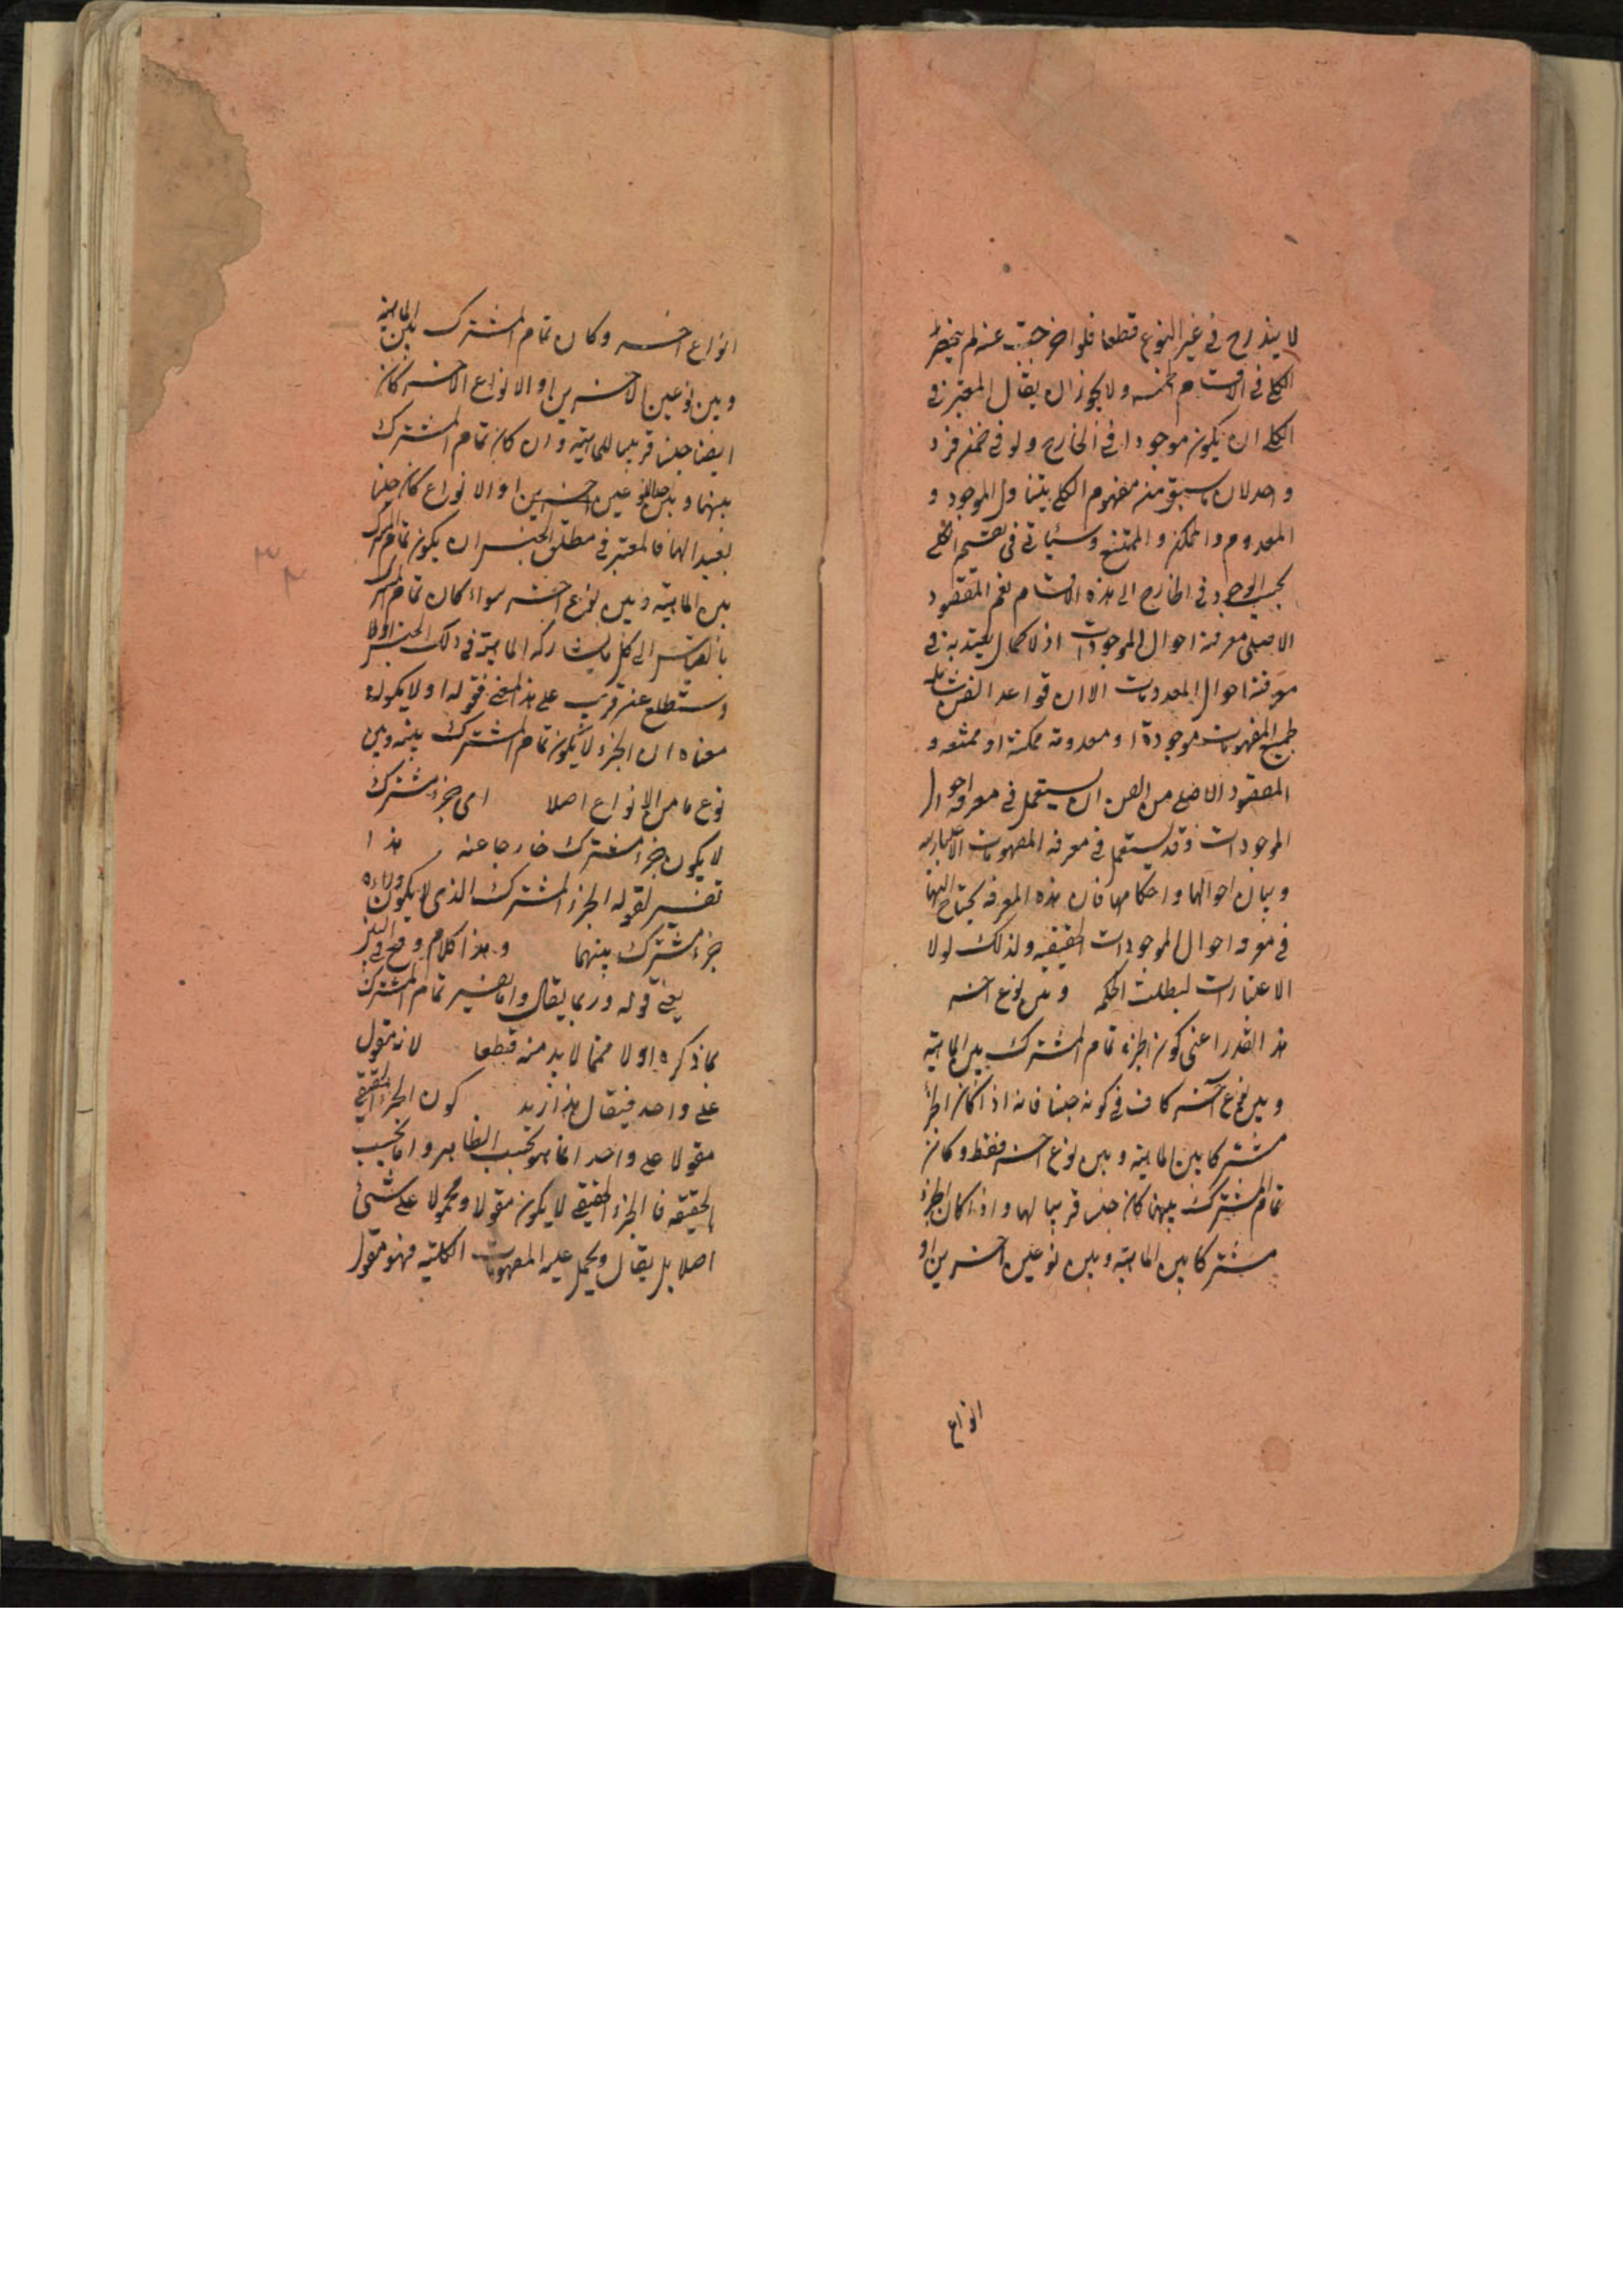 لا يندرج فى غير النوع قطعا فلو اخرجت عنه لم ينحصر
الكلى فى الاقسام الخمسه ولا يجوز ان يقال المعتبر فى
الكلى ان يكون موجودا فى الخارج ولو فى ضمن فرد
واحد لان ما سبق من مفهوم الكلى يتناول الموجود و
المعدوم والممكن والممتنع وسياتى فى تقسيم الكلى
بحسب الوجود فى الخارج الى هذه الاقسام نعم المقصود
الاصلى معرفة احوال الموجودات اذ لا كمال يعتد به فى
معرفة احوال المعدومات الا ان قواعد الفن شاملة
لجميع المفهومات موجودة او معدومة ممكنة او ممتنعه و
المقصود الاصلى من الفن ان يستعمل فى معرفة احوال
الموجودات وقد يستعمل فى معرفة المفهومات الاعتباريه
وبيان احوالها واحكامها فان هذه المعرفه يحتاج اليها
فى معرفه احوال الموجودات الحقيقيه ولذلك لولا
الاعتبارات لبطلت الحكمه وبين نوع اخر
هذا القدر اعنى كون الجزء تمام المشترك بين الماهية
وبين نوع آخر كاف فى كونه جنسا فانه اذا كان الجزء
مشتركا بين الماهية وبين نوع اخر فقط وكان
تمام المشترك بينهما كان جنسا قريبا لها واذا كان الجزء
مشتركا بين الماهية وبين نوعين اخرين او
انواع
انواع اخر وكان تمام المشترك بين الماهية
وبين نوعين الاخرين او الانواع الاخر كان
ايضا جنسا قريبا للماهية وان كان تمام المشترك
بينها وبين احد النوعين اخرين او الانواع كان جنسا
بعيدا لها فالمعتبر فى مطلق الجنس ان يكون تمام المشترك
بين الماهية وبين نوع اخر سواء كان تمام المشترك
بالقياس الى كل ما يشاركه الماهية فى ذلك الجنس اولا
وستطلع عن قريب على هذا المعنى فقوله او لا يكون
معناه ان الجزء لا يكون تمام المشترك بينه وبين
نوع ما من الانواع اصلا اى جزء مشترك
لا يكون جزء مشترك خارجا عنه هذا
تفسير لقوله الجزء المشترك الذى لا يكون وراءه
جزء مشترك بينهما وهذا كلام وقع فى البين
يعنى قوله وربما يقال واما تفسير تمام المشترك
بما ذكره اولا فمما لابد منه قطعا لانه مقول
على واحد فيقال هذا زيد كون الجزئى الحقيقى
مقولا على واحد انما هو بحسب الظاهر واما بحسب
الحقيقه فالجزئى الحقيقى لا يكون مقولا ومحمولا على شئ
اصلا بل يقال ويحمل عليه المفهومات الكلية فهو مقول